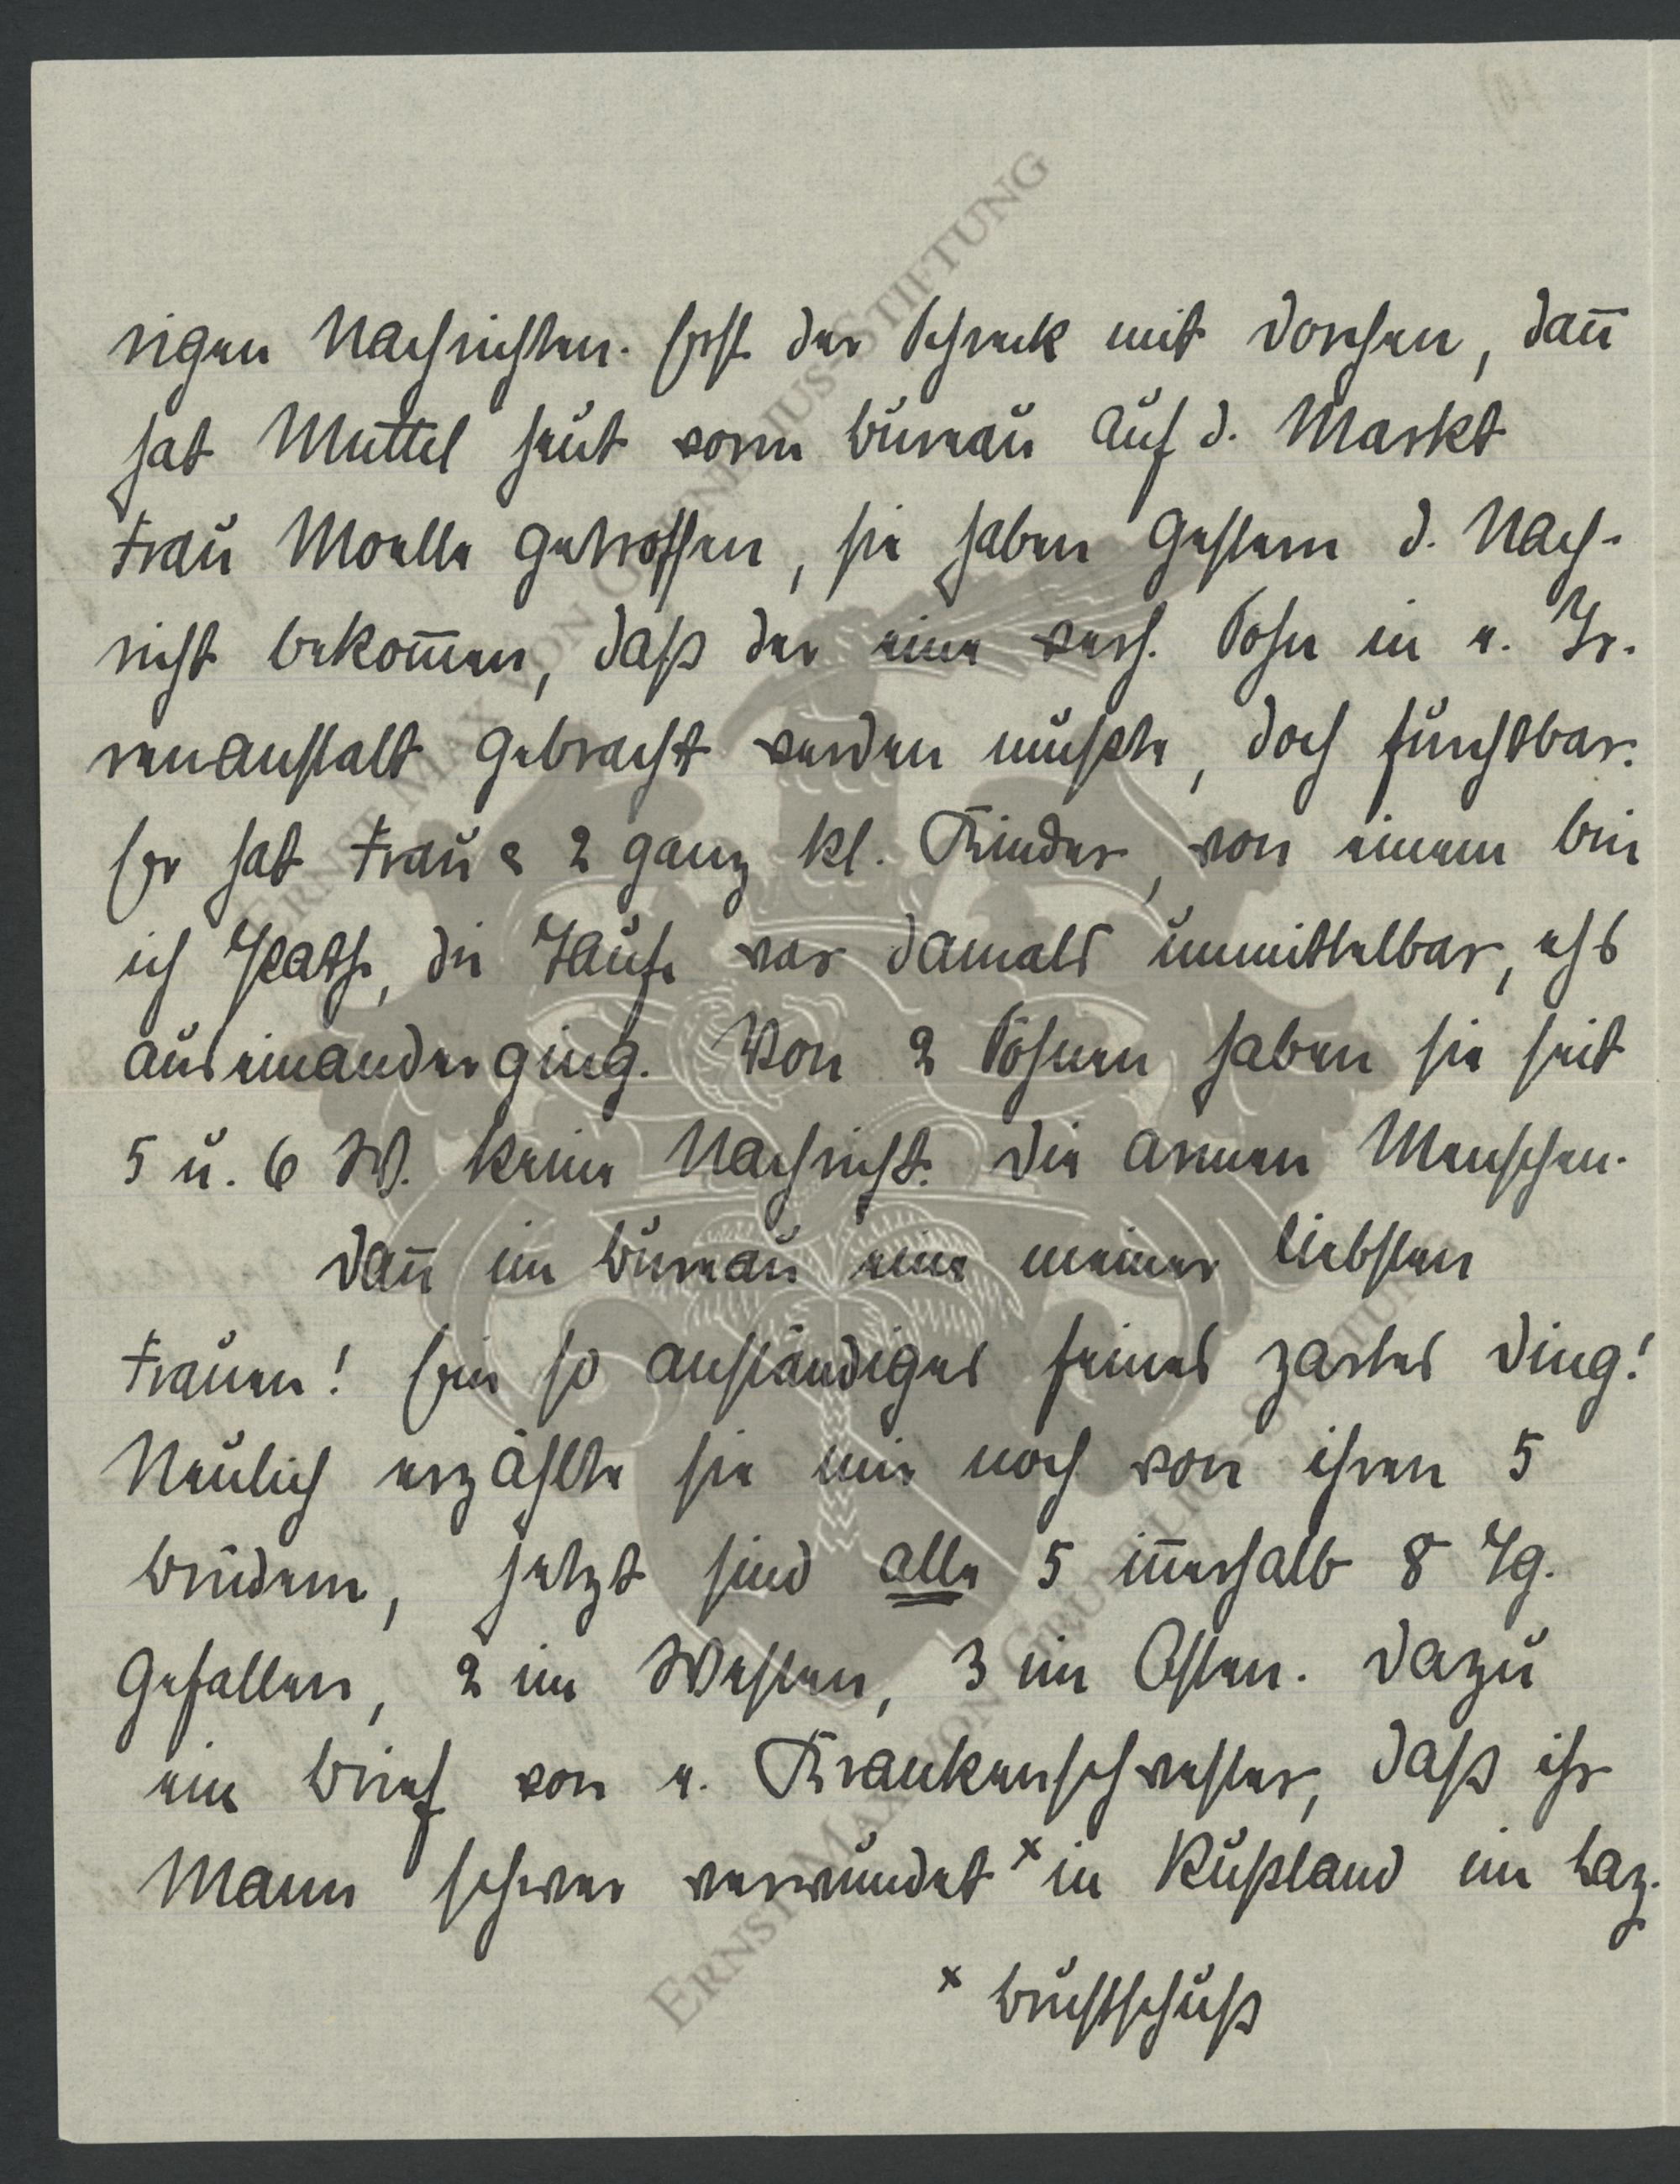 rigen Nachrichten. Erst der Schreck mit Dorchen, dan̅
hat Muttel heut vorm Bureau auf d. Markt
Frau Moelle getroffen, sie haben gestern d. Nach-
richt bekom̅en, daß der eine verh. Sohn in e. Ir-
renanstalt gebracht werden mußte, doch furchtbar.
Er hat Frau & 2 ganz kl. Kinder, von einem bin
ich Path, die Taufe war damals unmittelbar, ehs
auseinanderging. Von 2 Söhnen haben sie seit
5 u. 6 W. keine Nachricht. Die armen Menschen.
Dan̅ im Bureau eine meiner liebsten
Frauen! Ein so anständiges feines zartes Ding!
Neulich erzählte sie mir noch von ihren 5
Brüdern, jetzt sind alle 5 in̅erhalb 8 Tg.
gefallen, 2 im Westen, 3 im Osten. Dazu
ein Brief von e. Krankenschwester, daß ihr
Mann schwer verwundet x in Rußland im Laz.
x Brustschuß
ERNST MAX VON GRUNELIUS-STIFTUNG
ERNST MAX VON GRUNELIUS-STIFTUNG